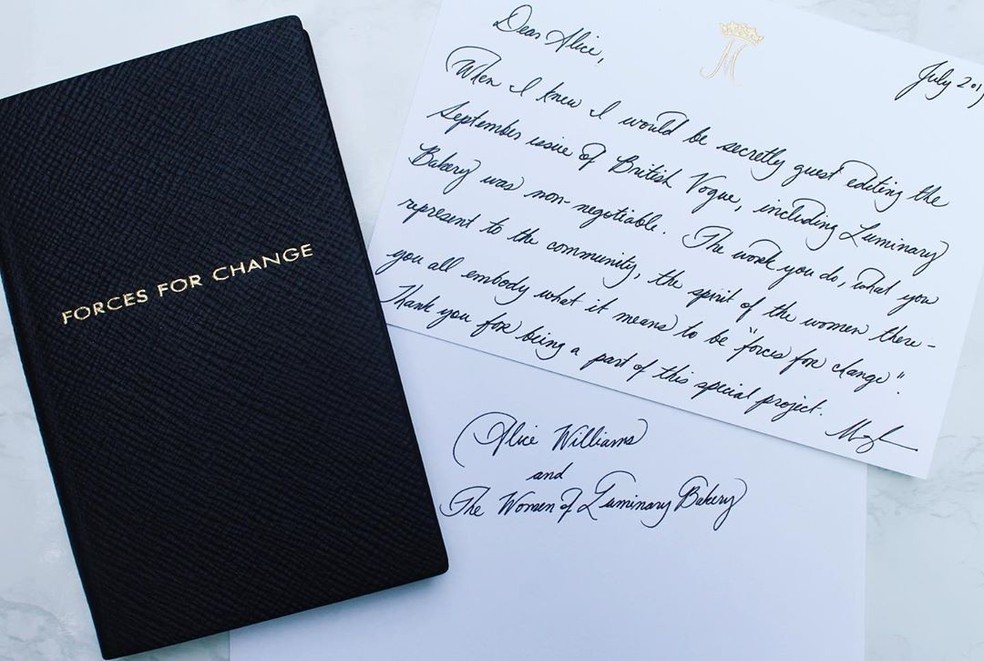 FORCES FOR CHANGE
M
July 201
Dear Alice,
When I knew I would be secretly guest editing the
September issue of British Vogue, including Luminary
Bakery was non-negotiable. The work you do, what you
represent to the community, the spirit of the women there-
you all embody what it means to be "forces for change".
Thank you for being a part of this special project.
Alice Williams
and
The Women of Luminary Bakery